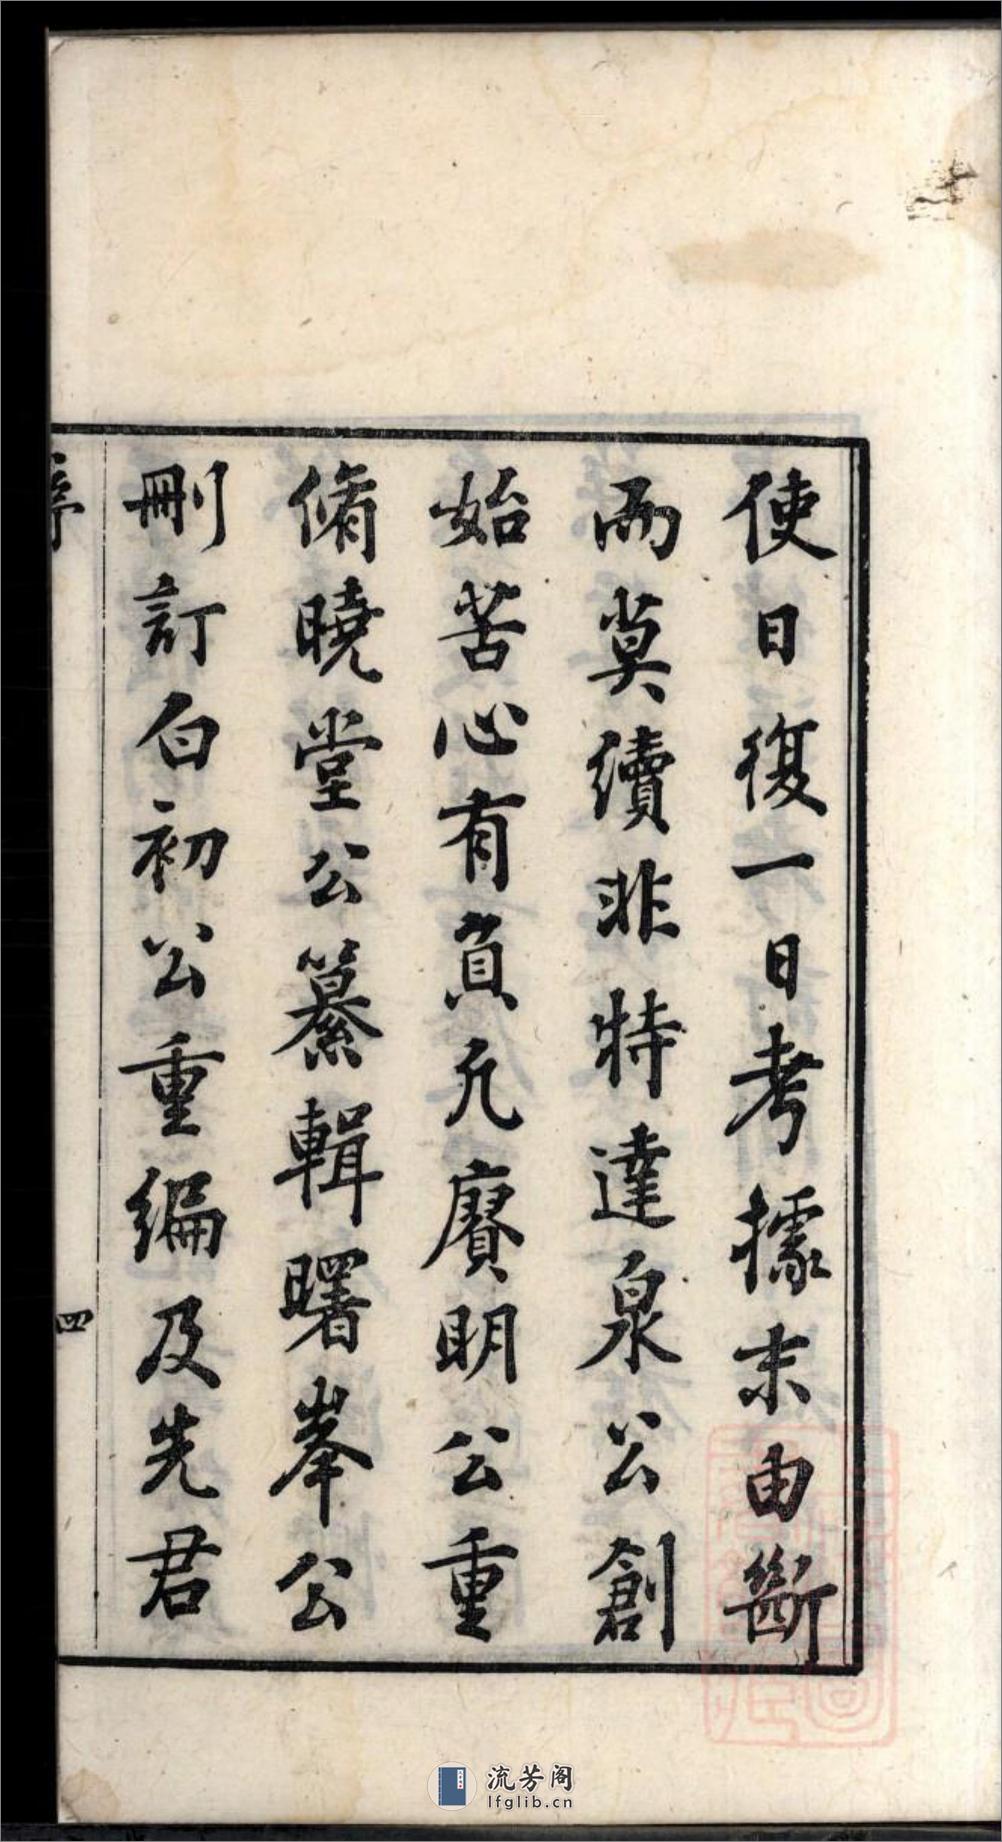 使日復一日考據末由斷
而莫續非特達泉公創
始苦心有負凢賡明公重
脩曉堂公纂輯曙峯公
刪訂白初公重編及先君
序
四
流芳阁
lfglib.cn